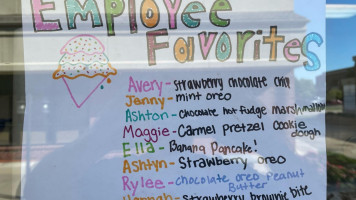 Employee
Favorites
Avery - strawberry chocolate chip
Jenny - mint oreo
Ashton - chocolate hot fudge marshmallow
Maggie - Carmel pretzel cookie
dough
Ella - Banana Pancake!
Ashtyn - Strawberry oreo
Rylee - chocolate oreo Peanut
Butter
Hannah - strawberry brownie bite